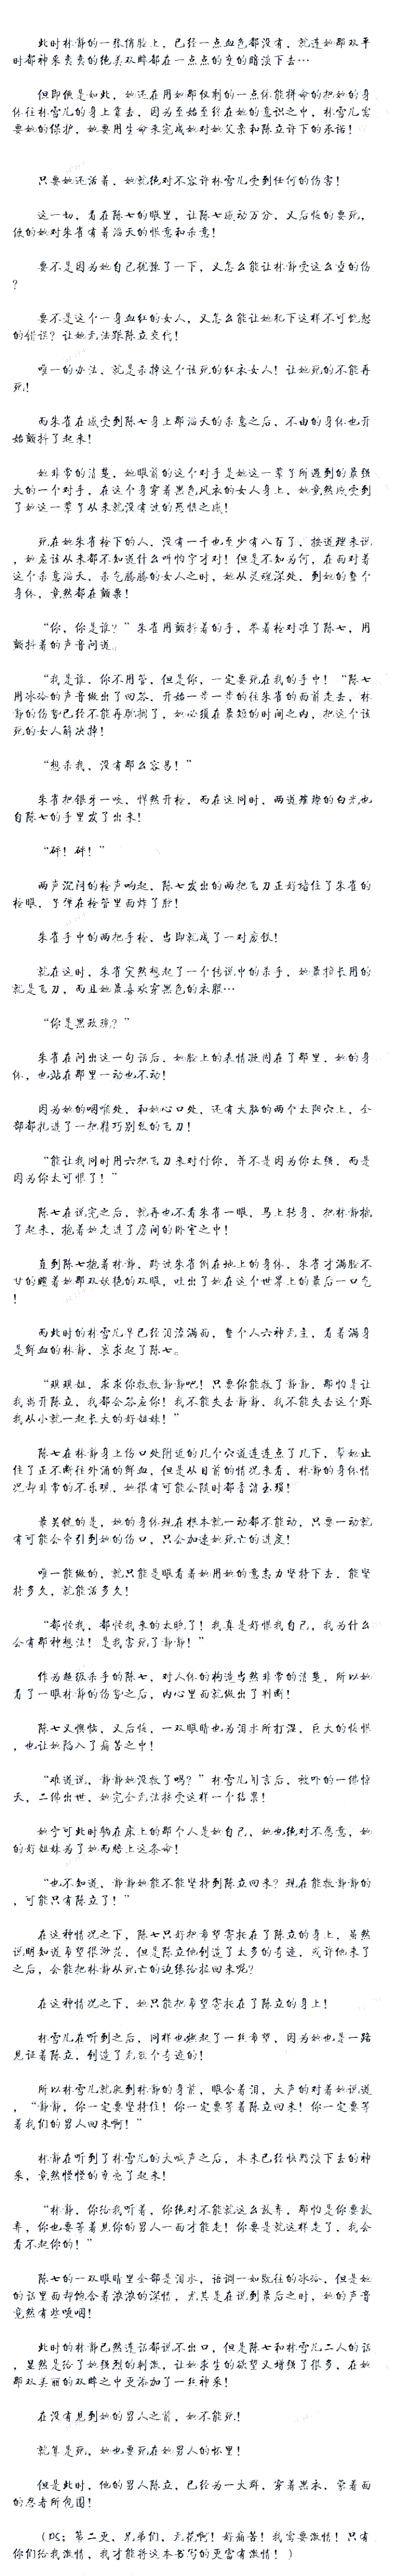 此时林静的一张俏脸上，已经一点血色都没有，就连她那双平
时都神采奕奕的绝美双眸都在一点点的变的暗淡下去…
但即使是如此，她还在用她那仅剩的一点体能拼命的把她的身
体往林雪儿的身上靠去，因为至始至终在她的意识之中，林雪儿需
要她的保护，她要用生命来完成她对她父亲和陈立许下的承诺！
只要她还活着，她就绝对不容许林雪儿受到任何的伤害！
这一切，看在陈七的眼里，让陈七感动万分，又后悔的要死，
使的她对朱雀有着滔天的恨意和杀意！
要不是因为她自己犹豫了一下，又怎么能让林静受这么重的伤
？
要不是这个一身血红的女人，又怎么能让她犯下这样不可饶恕
的错误？让她无法跟陈立交代！
唯一的办法，就是杀掉这个该死的红衣女人！让她死的不能再
死！
而朱雀在感受到陈七身上那滔天的杀意之后，不由的身体也开
始颤抖了起来！
她非常的清楚，她眼前的这个对手是她这一辈子所遇到的最强
大的一个对手，在这个身穿着黑色风衣的女人身上，她竟然感受到
了她这一辈子从来就没有过的恐惧之感！
死在她朱雀枪下的人，没有一千也至少有八百了，按道理来说
，她应该从来都不知道什么叫怕字才对！但是不知为何，在面对着
这个杀意滔天，杀气腾腾的女人之时，她从灵魂深处，到她的整个
身体，竟然都在颤栗！
“你，你是谁？”朱雀用颤抖着的手，举着枪对准了陈七，用
颤抖着的声音问道。
“我是谁，你不用管，但是你，一定要死在我的手中！“陈七
用冰冷的声音做出了回答，开始一步一步的往朱雀的面前走去，林
静的伤势已经不能再耽搁了，她必须在最短的时间之内，把这个该
死的女人解决掉！
“想杀我，没有那么容易！”
朱雀把银牙一咬，悍然开枪，而在这同时，两道璀璨的白光也
自陈七的手里发了出来！
“砰！砰！”
两声沉闷的枪声响起，陈七发出的两把飞刀正好堵住了朱雀的
枪眼，子弹在枪管里面炸了膛！
朱雀手中的两把手枪，当即就成了一对废铁！
就在这时，朱雀突然想起了一个传说中的杀手，她最擅长用的
就是飞刀，而且她最喜欢穿黑色的衣服…
“你是黑玫瑰？”
朱雀在问出这一句话后，她脸上的表情凝固在了那里，她的身
体，也站在那里一动也不动！
因为她的咽喉处，和她心口处，还有大脑的两个太阳穴上，全
部都扎进了一把精巧别致的飞刀！
“能让我同时用六把飞刀来对付你，并不是因为你太强，而是
因为你太可恨了！”
陈七在说完之后，就再也不看朱雀一眼，马上转身，把林静抱
了起来，抱着她走进了房间的卧室之中！
直到陈七抱着林静，跨过朱雀倒在地上的身体，朱雀才满脸不
甘的瞪着她那双妖艳的双眼，吐出了她在这个世界上的最后一口气
！
而此时的林雪儿早已经泪流满面，整个人六神无主，看着满身
是鲜血的林静，哀求起了陈七。
“琪琪姐，求求你救救静静吧！只要你能救了静静，那怕是让
我离开陈立，我都会答应你！我不能失去静静，我不能失去这个跟
我从小就一起长大的好姐妹！”
陈七在林静身上伤口处附近的几个穴道连连点了几下，帮她止
住了正不断往外涌的鲜血，但是从目前的情况来看，林静的身体情
况却非常的不乐观，她很有可能会随时都香消玉殒！
最关键的是，她的身体现在根本就一动都不能动，只要一动就
有可能会牵引到她的伤口，只会加速她死亡的进度！
唯一能做的，就只能是眼看着她用她的意志力坚持下去，能坚
持多久，就能活多久！
“都怪我，都怪我来的太晚了！我真是好恨我自己，我为什么
会有那种想法！是我害死了静静！”
作为超级杀手的陈七，对人体的构造当然非常的清楚，所以她
看了一眼林静的伤势之后，内心里面就做出了判断！
陈七又懊恼，又后悔，一双眼睛也为泪水所打湿，巨大的悔恨
，也让她陷入了痛苦之中！
“难道说，静静她没救了吗？”林雪儿闻言后，被吓的一佛惊
天，二佛出世，她完全无法接受这样一个结果！
她宁可此时躺在床上的那个人是她自己，她也绝对不愿意，她
的好姐妹为了她而赔上这条命！
“也不知道，静静她能不能坚持到陈立回来？现在能救静静的
，可能只有陈立了！”
在这种情况之下，陈七只好把希望寄托在了陈立的身上，虽然
说明知道希望很渺茫，但是陈立他创造了太多的奇迹，或许他来了
之后，会能把林静从死亡的边缘给拉回来呢？
在这种情况之下，她只能把希望寄托在了陈立的身上！
林雪儿在听到之后，同样也燃起了一丝希望，因为她也是一路
见证着陈立，创造了无数个奇迹的！
所以林雪儿就爬到林静的身前，眼含着泪，大声的对着她说道
，“静静，你一定要坚持住！你一定要等着陈立回来！你一定要等
着我们的男人回来啊！”
林静在听到了林雪儿的大喊声之后，本来已经快黯淡下去的神
采，竟然慢慢的变亮了起来！
“林静，你给我听着，你绝对不能就这么放弃，那怕是你要放
弃，你也要等着见你的男人一面才能走！你要是就这样走了，我会
看不起你的！”
陈七的一双眼睛里全部是泪水，语调一如既往的冰冷，但是她
的话里面却饱含着浓浓的深情，尤其是在说到最后之时，她的声音
竟然有些哽咽！
此时的林静已然连话都说不出口，但是陈七和林雪儿二人的话
，显然是给了她强烈的刺激，让她求生的欲望又增强了很多，在她
那双美丽的双眸之中更添加了一丝神采！
在没有见到她的男人之前，她不能死！
就算是死，她也要死在她男人的怀里！
但是此时，他的男人陈立，已经为一大群，穿着黑衣，蒙着面
的忍者所包围！
（PS：第二更，兄弟们，无花啊！好痛苦！我需要激情！只有
你们给我激情，我才能将这本书写的更富有激情！）